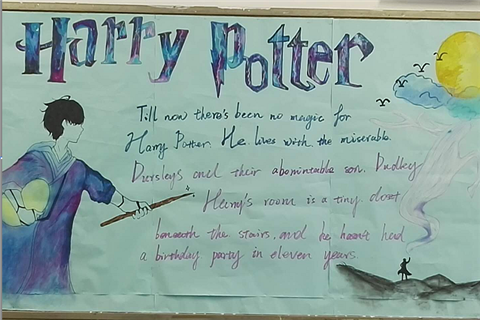 Harry Potter
Till now there's been no magic for
Harry Potter. He lives with the miserable
Dursleys and their abominable son, Dudley
Harry's room is a tiny closet
beneath the stairs, and he hasn't had
a birthday party in eleven years.